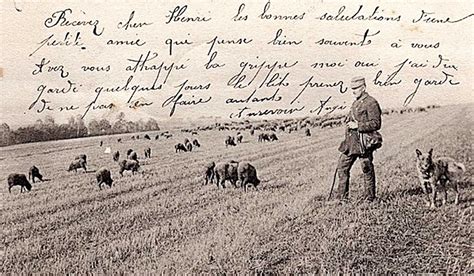 Recevez cher Henri les bonnes salutations d'une
petite amie qui pense bien souvent à vous
Avez vous attrappé la grippe moi oui j'ai du
garde quelques jours le lit prenez bien garde
de ne pas en faire autant